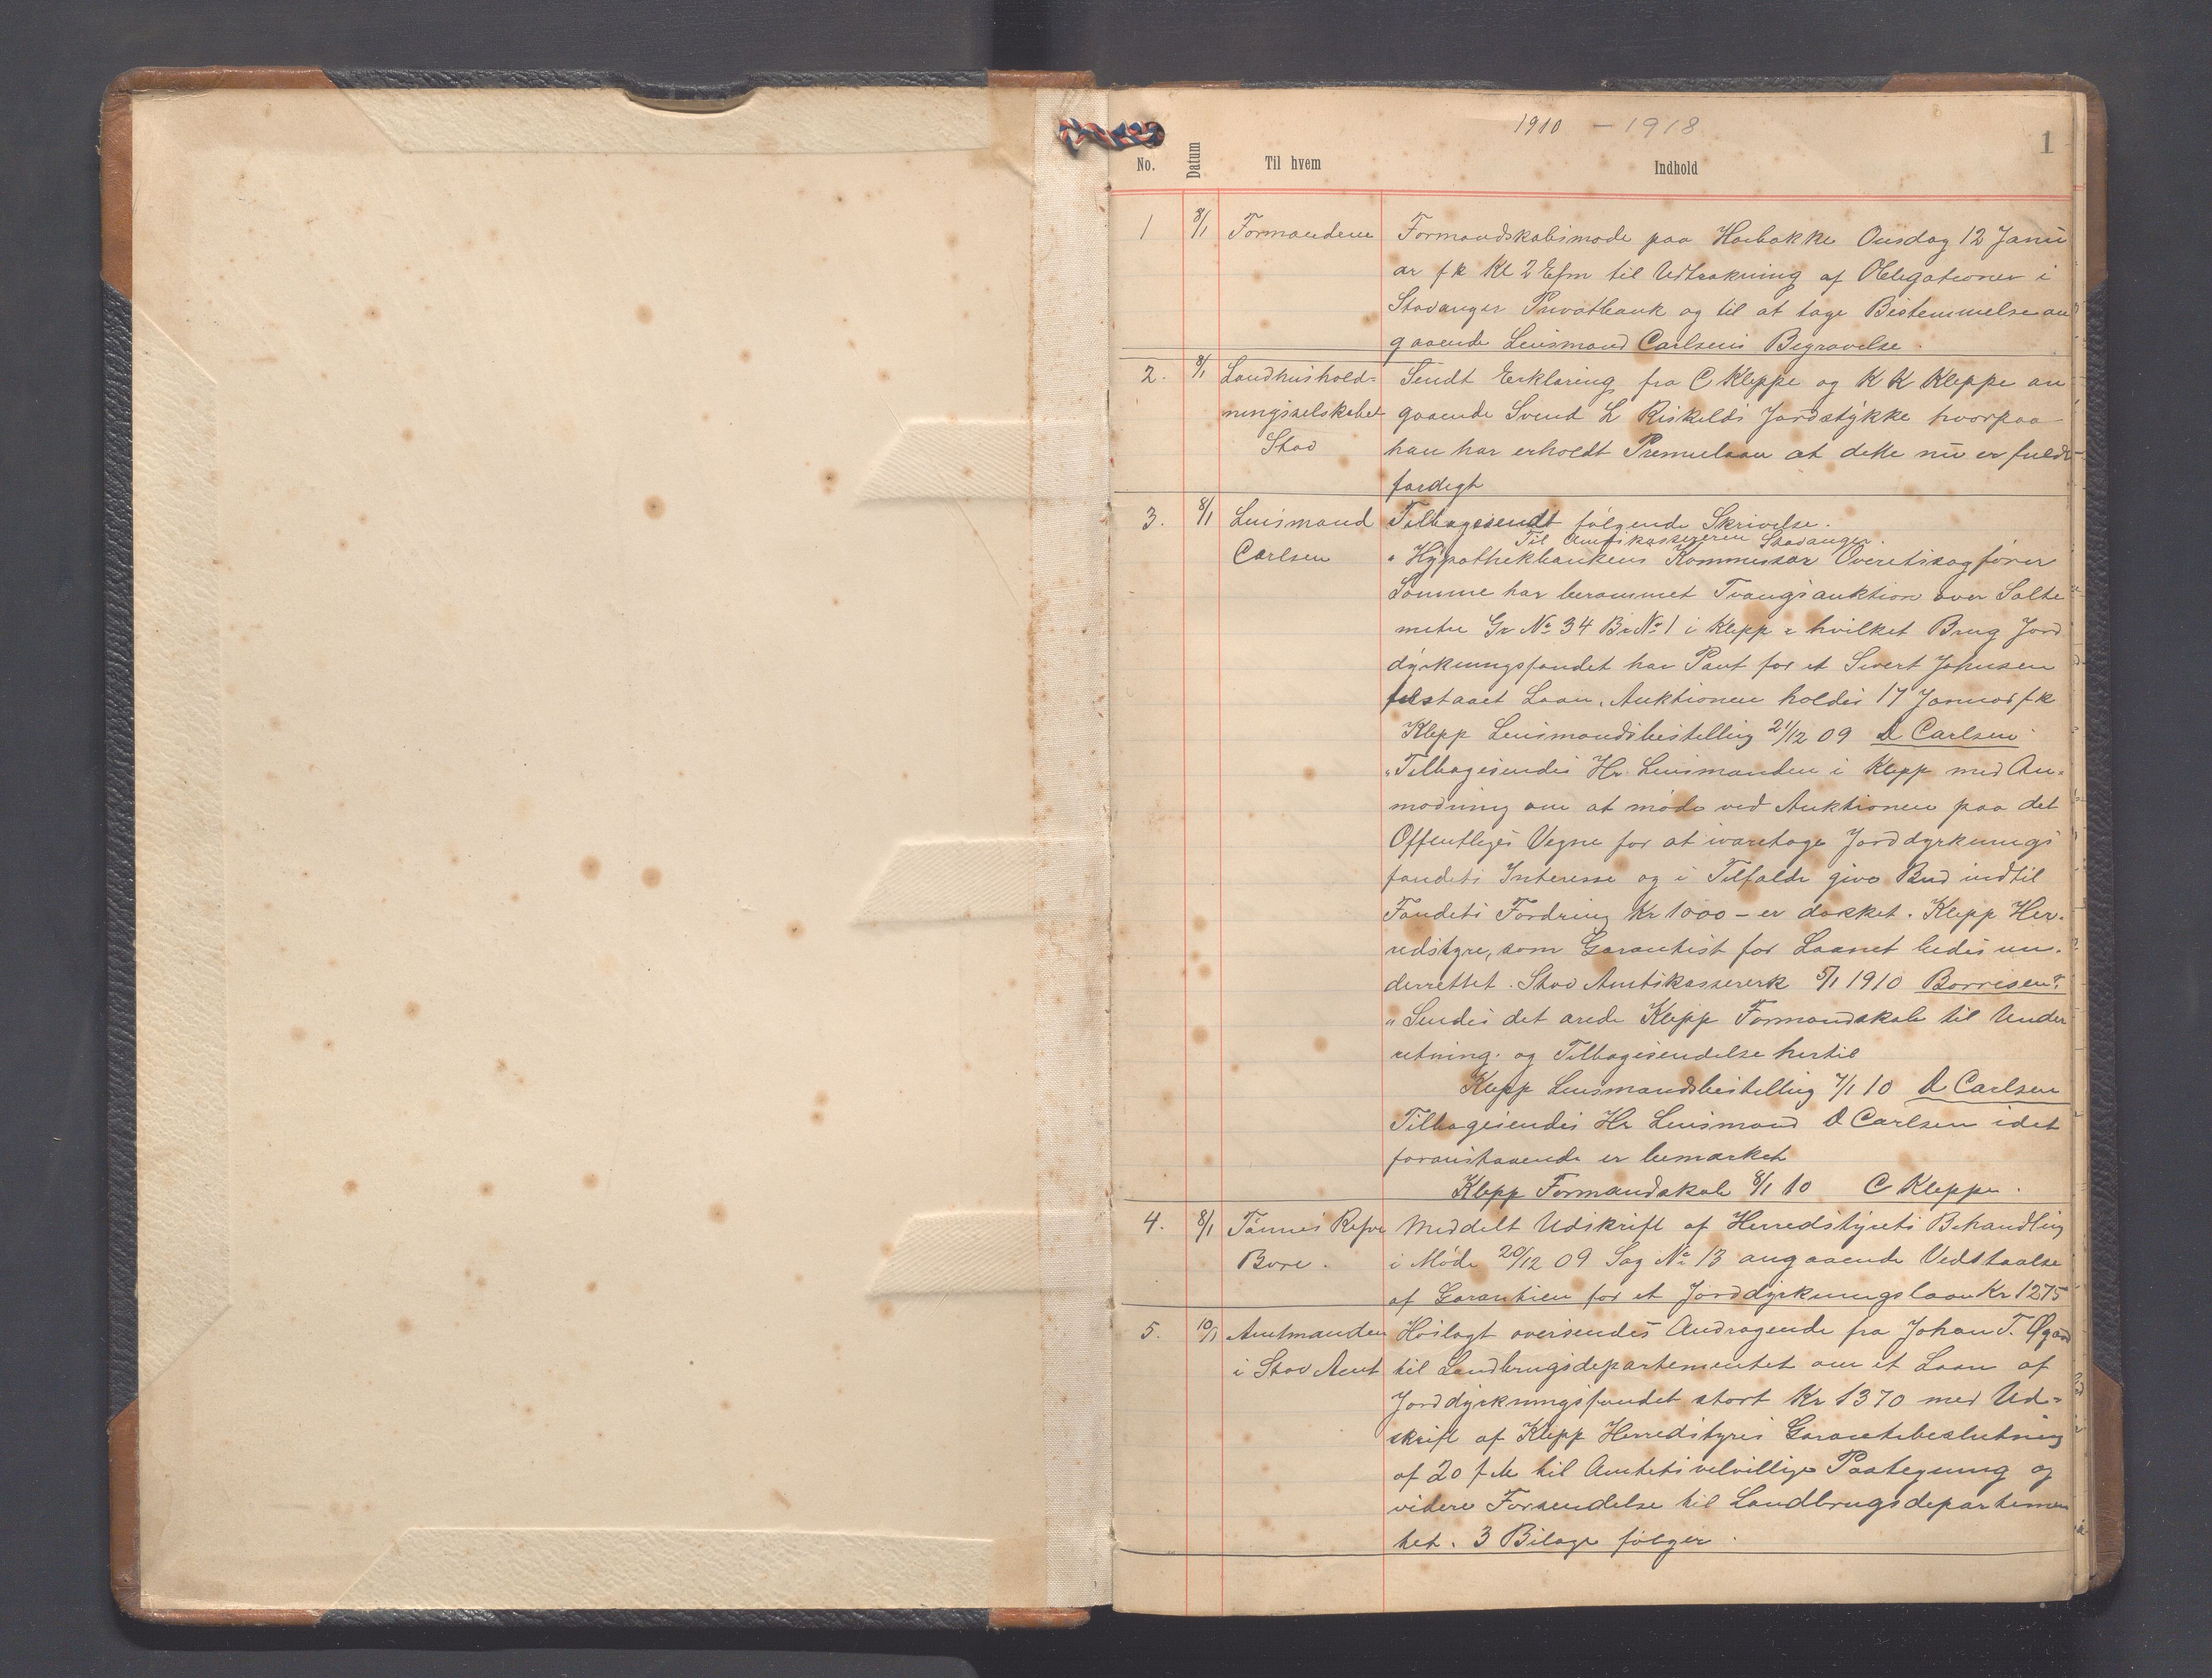 1910 - 1918
1
No. Datum Til hvem Indhold
1 8/1 Formændene Formandskabsmøde paa Haabakke Onsdag 12 Janu
ar fk Kl 2 Efm til Udtrækning af Obligationer i
Stavanger Privatbank og til at tage Bestemmelse an
gaaende Lensmand Carlsens Begravelse.
2. 8/1 Landhushold- Sendt Erklæring fra C Kleppe og K K Kleppe an
ningsselskabet gaaende Svend L Riskelds Jordstykke hvorpaa
Stav han har erholdt Premielaan at dette nu er fuldt
færdigt
3. 8/1 Lensmand Tilbagesendt følgende Skrivelse.
Til Amtskassereren Stavanger.
Carlsen "Hypothekbankens Kommissær Overetssagfører
Sømme har berammet Tvangsauktion over Salte
metre Gr No 34 Br No 1 i Klepp i hvilket Brug Jord
dyrkningsfondet har Pant for et Sivert Johnsen
tilstaaet Laan. Auktionen holdes 17 Januar fk
Klepp Lensmandsbestilling 21/12 09 D Carlsen
"Tilbagesendes Hr. Lensmanden i Klepp med An-
modning om at møde ved Auktionen paa det
Offentliges Vegne for at ivaretage Jorddyrknings
fondets Interesse og i Tilfælde give Bud indtil
Fondets Fordring Kr 1000 - er dækket. Klepp Her-
redstyre, som Garantist for Laanet bedes un-
derrettet. Stav Amtskassererk 5/1 1910 Borresen.
"Sendes det ærede Klepp Formandskab til Under
retning og Tilbagesendelse hertil
Klepp Lensmandsbestilling 7/1 10 D Carlsen
Tilbagesendes Hr Lensmand D Carlsen idet
foranstaaende er bemærket
Klepp Formandskab 8/1 10 C Kleppe.
4. 8/1 Tønnes Refve Meddelt Udskrift af Herredstyrets Behandling
Bore. i Møde 20/12 09 Sag No 13 angaaende Vedstaalse
af Garantien for et Jorddyrkningslaan Kr 1275
5. 10/1 Amtmanden Hoslagt oversendes Andragende fra Johan T. Øgard
i Stav Amt til Landbrugsdepartementet om et Laan af
Jorddyrkningsfondet stort Kr 1370 med Ud-
skrift af Klepp Herredstyres Garantibeslutning
af 20 f M til Amtets velvillige Paategning og
videre Forsendelse til Landbrugsdepartemen
tet. 3 Bilage følger.